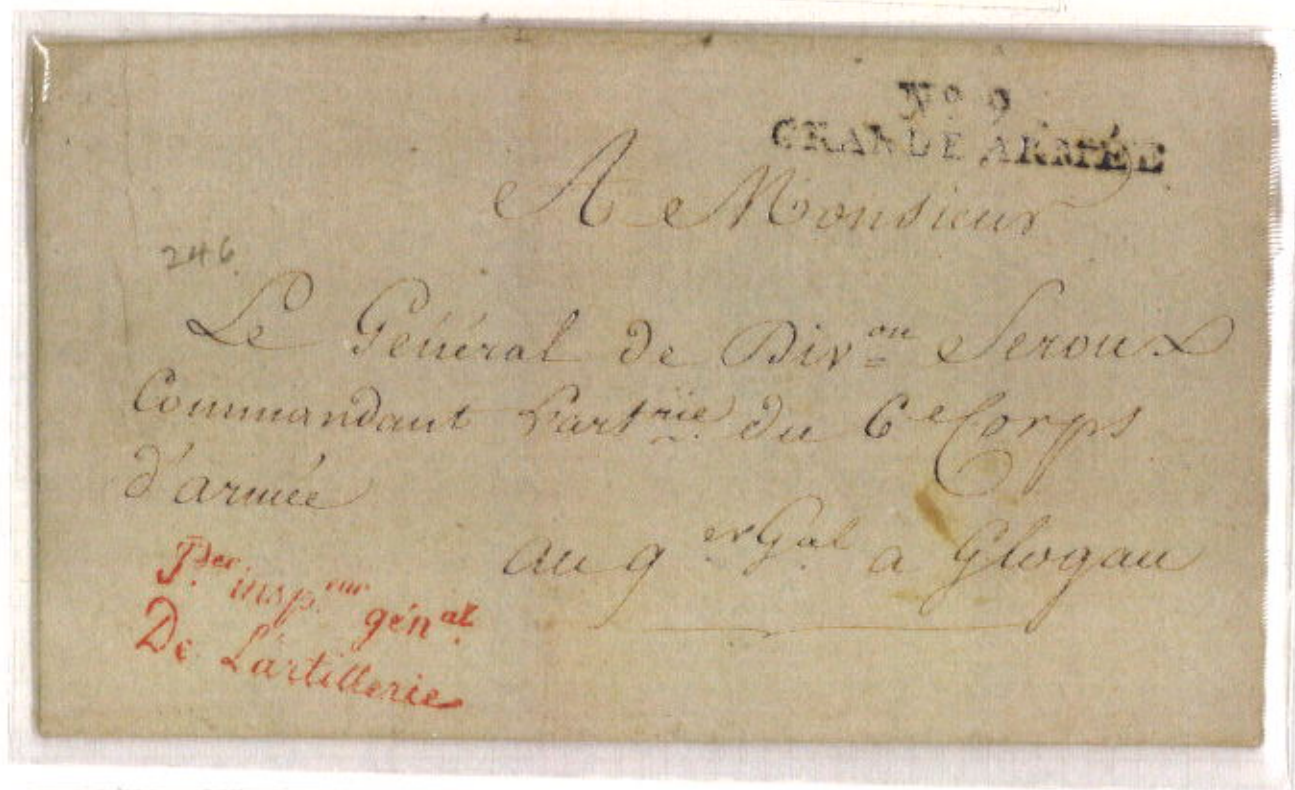 No 9
GRANDE ARMÉE
A Monsieur
246
Le Général de Divon Seroux
Commandant L'artrie du 6e Corps
d'armée
au qer Gal a Glogau
Pder insp.eur génal
De L'artillerie